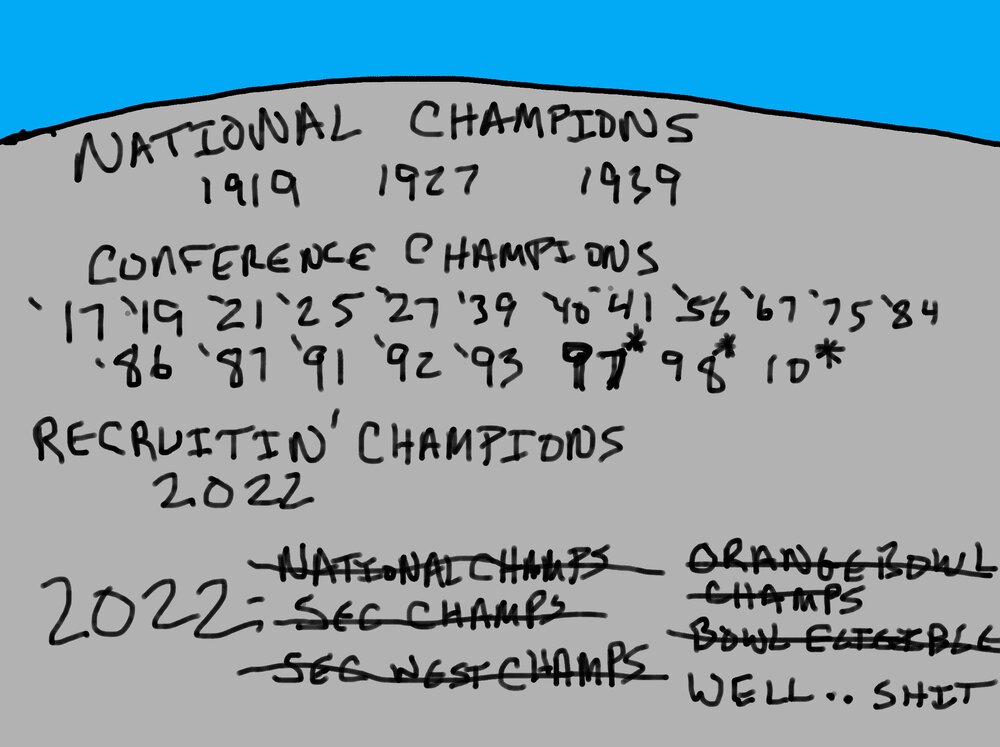 NATIONAL CHAMPIONS
1919 1927 1939
CONFERENCE CHAMPIONS
'17 '19 '21 '25 '27 '39 '40 '41 '56 '67 '75 '84
'86 '87 '91 '92 '93 97* 98* 10*
RECRUITIN' CHAMPIONS
2022
2022:
NATIONAL CHAMPS
SEC CHAMPS
SEC WEST CHAMPS
ORANGE BOWL
CHAMPS
BOWL ELIGIBLE
WELL.. SHIT